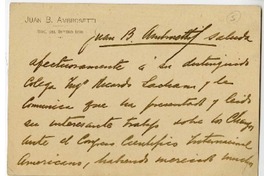 JUAN B. AMBROSETTI
Juan B. Ambrosetti saluda
afectuosamente a su distinguido
Colega Ingº Ricardo Latcham y le
comunica que ha presentado y leido
su interesante trabajo sobre los Changos
ante el Congreso Científico Internacional
Americano, habiendo merecido muchos